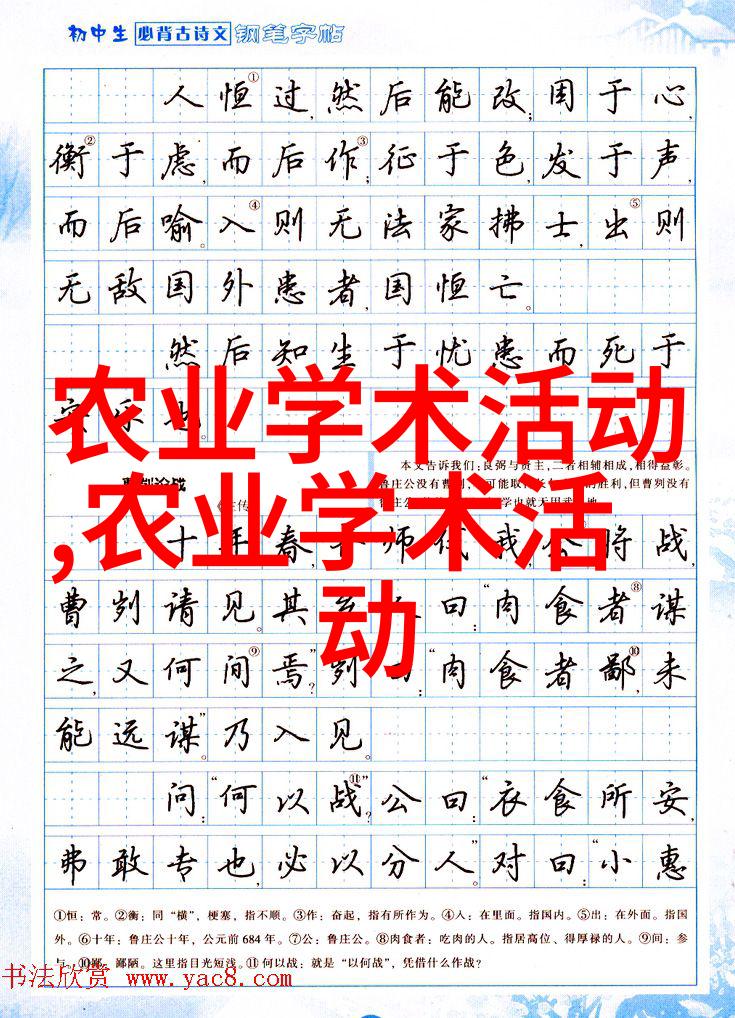 初中生 必背古诗文 钢笔字帖
人恒①过,然后能改;困于心,
衡②于虑,而后作③;征于色,发于声,
而后喻。入④则无法家拂士,出⑤则
无敌国外患者,国恒亡。
然后知生于忧患而死于
乐
农业学术活动
,农业学术活
动
本文告诉我们:良弼与贤主,二者相辅相成,相得益彰。
鲁庄公没有曹
胜利,但曹刿没有
十年春,师伐我,公将战,
曹刿请见。其曰:“肉食者⑧谋
之,又何间⑨焉?”刿“肉食者鄙⑩,未
能远谋。”乃入见。
问:“何以战⑪?”公曰:“衣食所安,
弗敢专也,必以分人。”对曰:“小惠
①恒:常。②衡:同“横”,梗塞,指不顺。③作:奋起,指有所作为。④入:在里面。指国内。⑤出:在外面。指国
外。⑥十年:鲁庄公十年,公元前684年。⑦公:鲁庄公。⑧肉食者:吃肉的人。指居高位、得厚禄的人。⑨间:参
与。⑩鄙:鄙陋。这里指目光短浅。⑪何以战:就是“以何战”,凭借什么作战?
书法欣赏 www.yac8.com